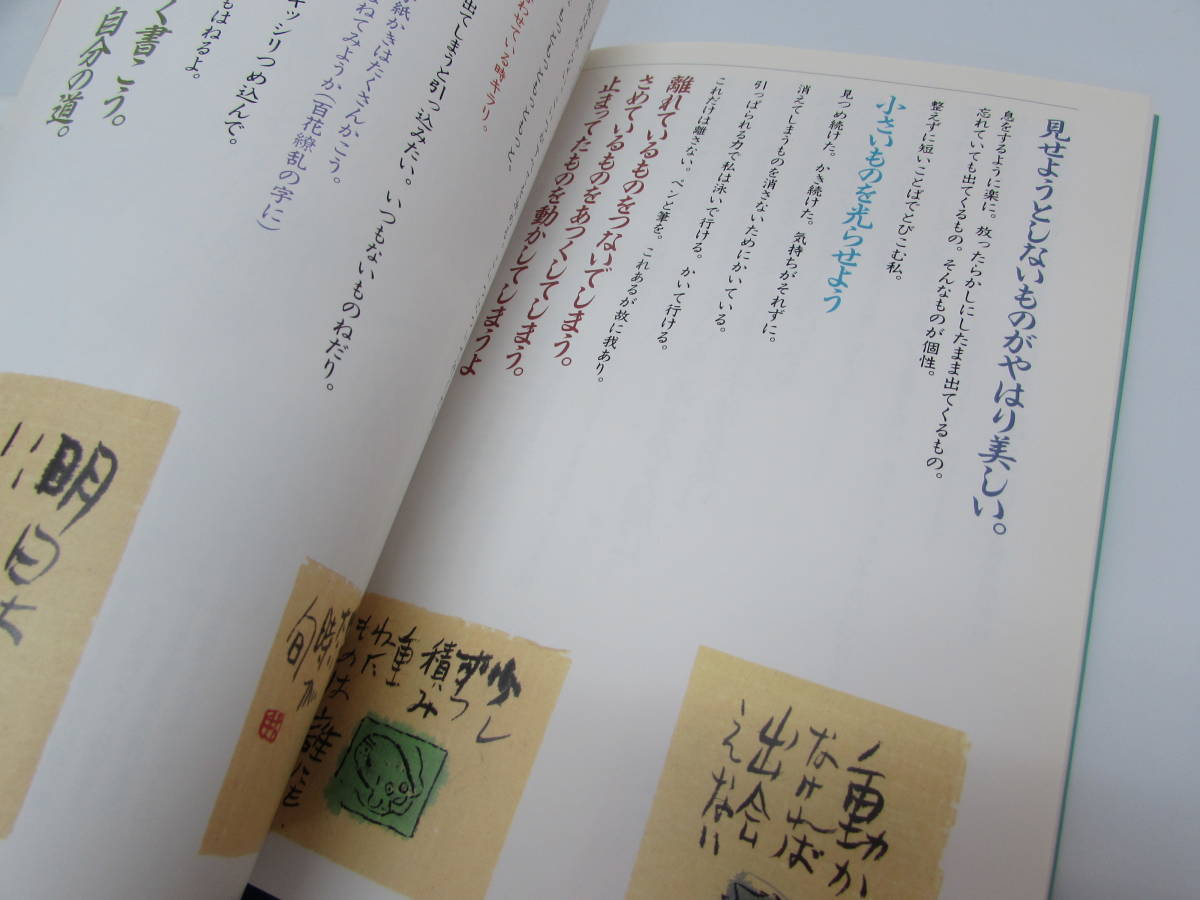 見せようとしないものがやはり美しい。
息をするように楽に。放ったらかしにしたまま出てくるもの。
忘れていても出てくるもの。そんなものが個性。
整えずに短いことばでとびこむ私。
小さいものを光らせよう
見つめ続けた。かき続けた。気持ちがそれずに。
消えてしまうものを消さないためにかいている。
引っぱられる力で私は泳いで行ける。かいて行ける。
これだけは離さない。ペンと筆を。これあるが故に我あり。
離れているものをつないでしまう。
さめているものをあつくしてしまう。
止まってたものを動かしてしまうよ
動か
なければ
出会
えない
少し
ずつ
積み
重
ねた
もの
旬が
わせている時キラリ。
出てしまうと引っ込みたい。いつもないものねだり。
紙かきはたくさんかこう。
ねてみようか(百花繚乱の字に)
ギッシリつめ込んで。
もはねるよ。
く書こう。
自分の道。
明日